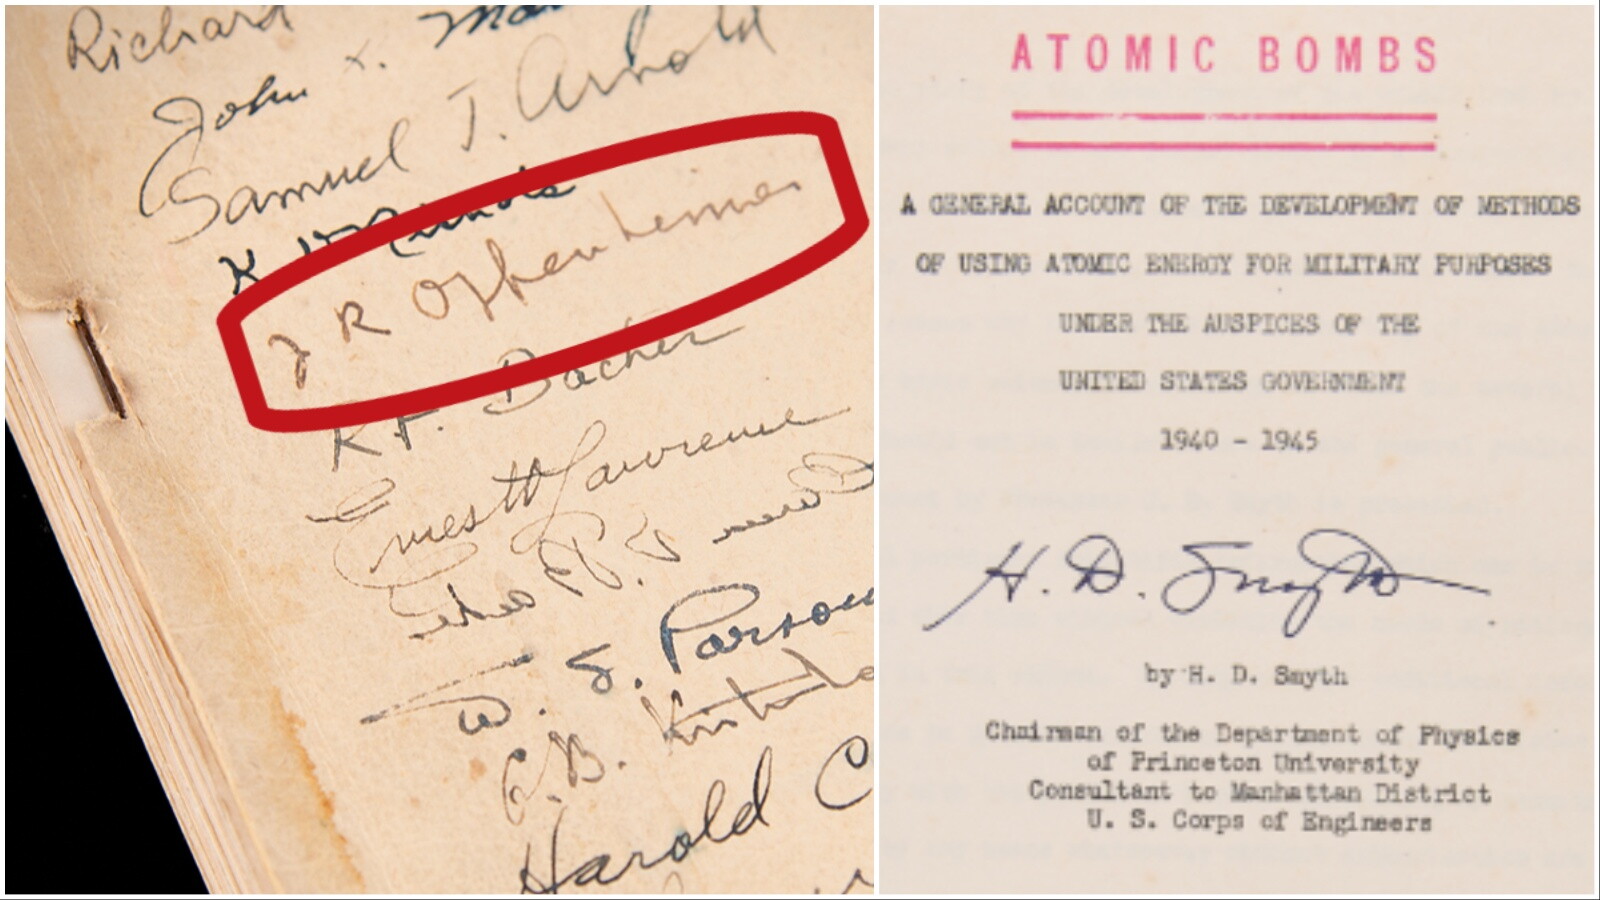 Richard
John X.
Samuel T. Arnold
K D Nichols
J R Oppenheimer
R F. Bacher
Ernest O Lawrence
W. S. Parsons
G. B. Kistiako
Harold C
ATOMIC BOMBS
A GENERAL ACCOUNT OF THE DEVELOPMENT OF METHODS
OF USING ATOMIC ENERGY FOR MILITARY PURPOSES
UNDER THE AUSPICES OF THE
UNITED STATES GOVERNMENT
1940 - 1945
H. D. Smyth
by H. D. Smyth
Chairman of the Department of Physics
of Princeton University
Consultant to Manhattan District
U. S. Corps of Engineers